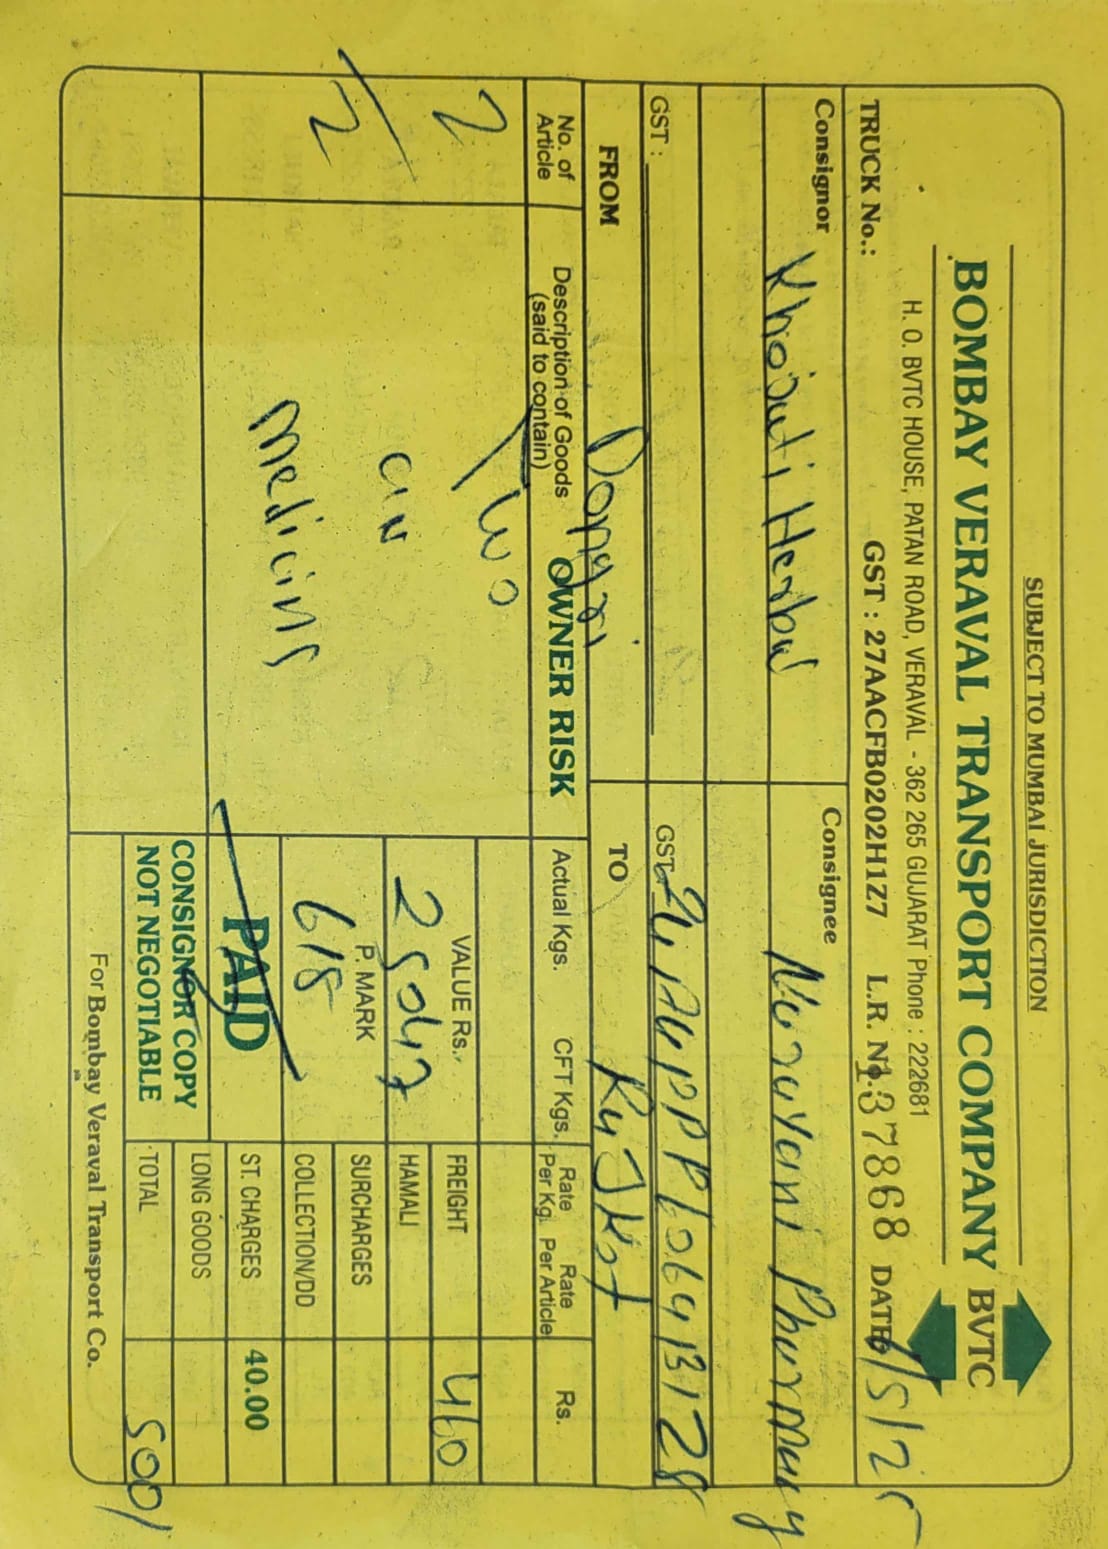 SUBJECT TO MUMBAI JURISDICTION
BOMBAY VERAVAL TRANSPORT COMPANY BVTC
H. O. BVTC HOUSE, PATAN ROAD, VERAVAL - 362 265 GUJARAT Phone : 222681
TRUCK No.: GST : 27AACFB0202H1Z7 L.R. No. 137868 DATE /5/25
Consignor Khojati Herbal Consignee Narayani Pharmacy
GST : GST. 24
FROM Dongri TO RajKot
No. of Article Description of Goods (said to contain) OWNER RISK Actual Kgs. CFT Kgs. Rate Per Kg. Rate Per Article Rs.
2 Two
VALUE Rs. 25047
FREIGHT 460
HAMALI
P. MARK 618
SURCHARGES
2 Medicine
COLLECTION/DD
PAID ST. CHARGES 40.00
CONSIGNOR COPY
NOT NEGOTIABLE
LONG GOODS
TOTAL 500/
For Bombay Veraval Transport Co.